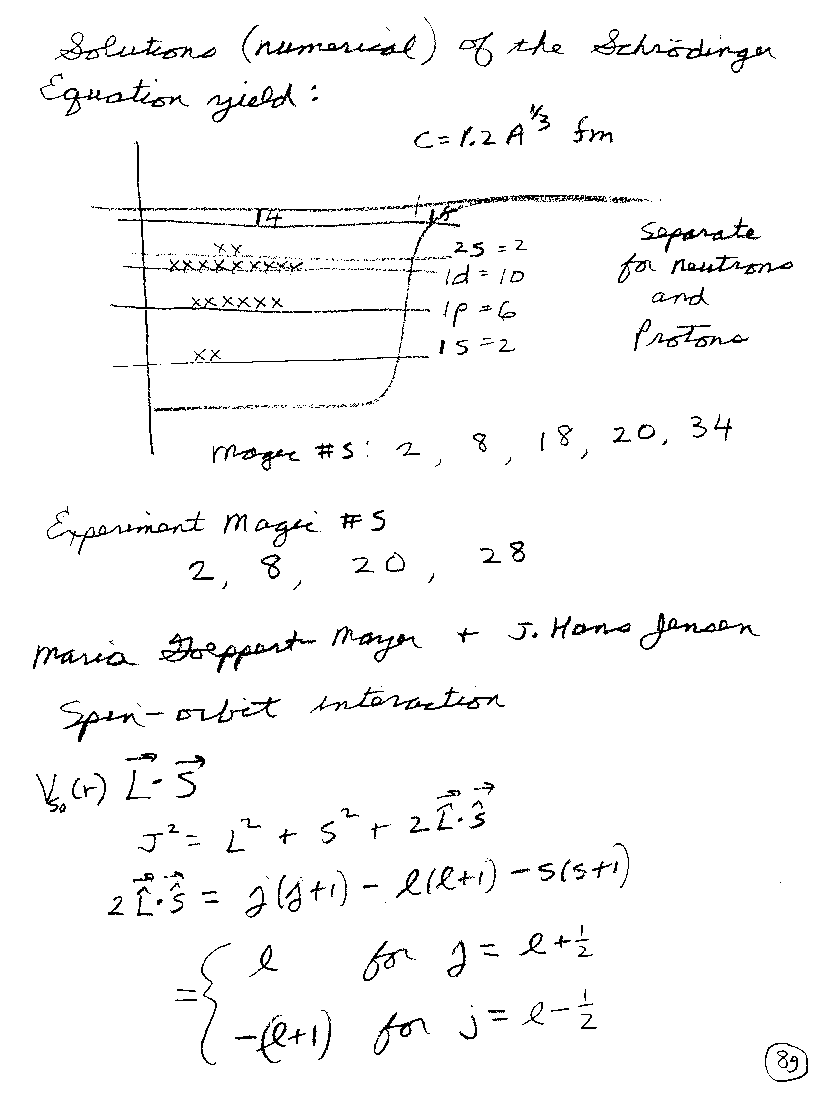 Solutions (numerical) of the Schrödinger
Equation yield:
C = 1.2 A^{1/3} fm
14
XX
2S = 2
XXXXXXXXXX
1d = 10
XXXXXX
1p = 6
XX
1S = 2
Separate
for neutrons
and
Protons
Magic #s: 2, 8, 18, 20, 34
Experiment Magic #s
2, 8, 20, 28
Maria Goeppert Mayer + J. Hans Jensen
Spin-orbit interaction
V_{so}(r) \vec{L}·\vec{S}
J² = L² + S² + 2\vec{\hat{L}}·\vec{\hat{S}}
2\vec{\hat{L}}·\vec{\hat{S}} = j(j+1) - l(l+1) - s(s+1)
= { l for j = l + 1/2
-(l+1) for j = l - 1/2
89